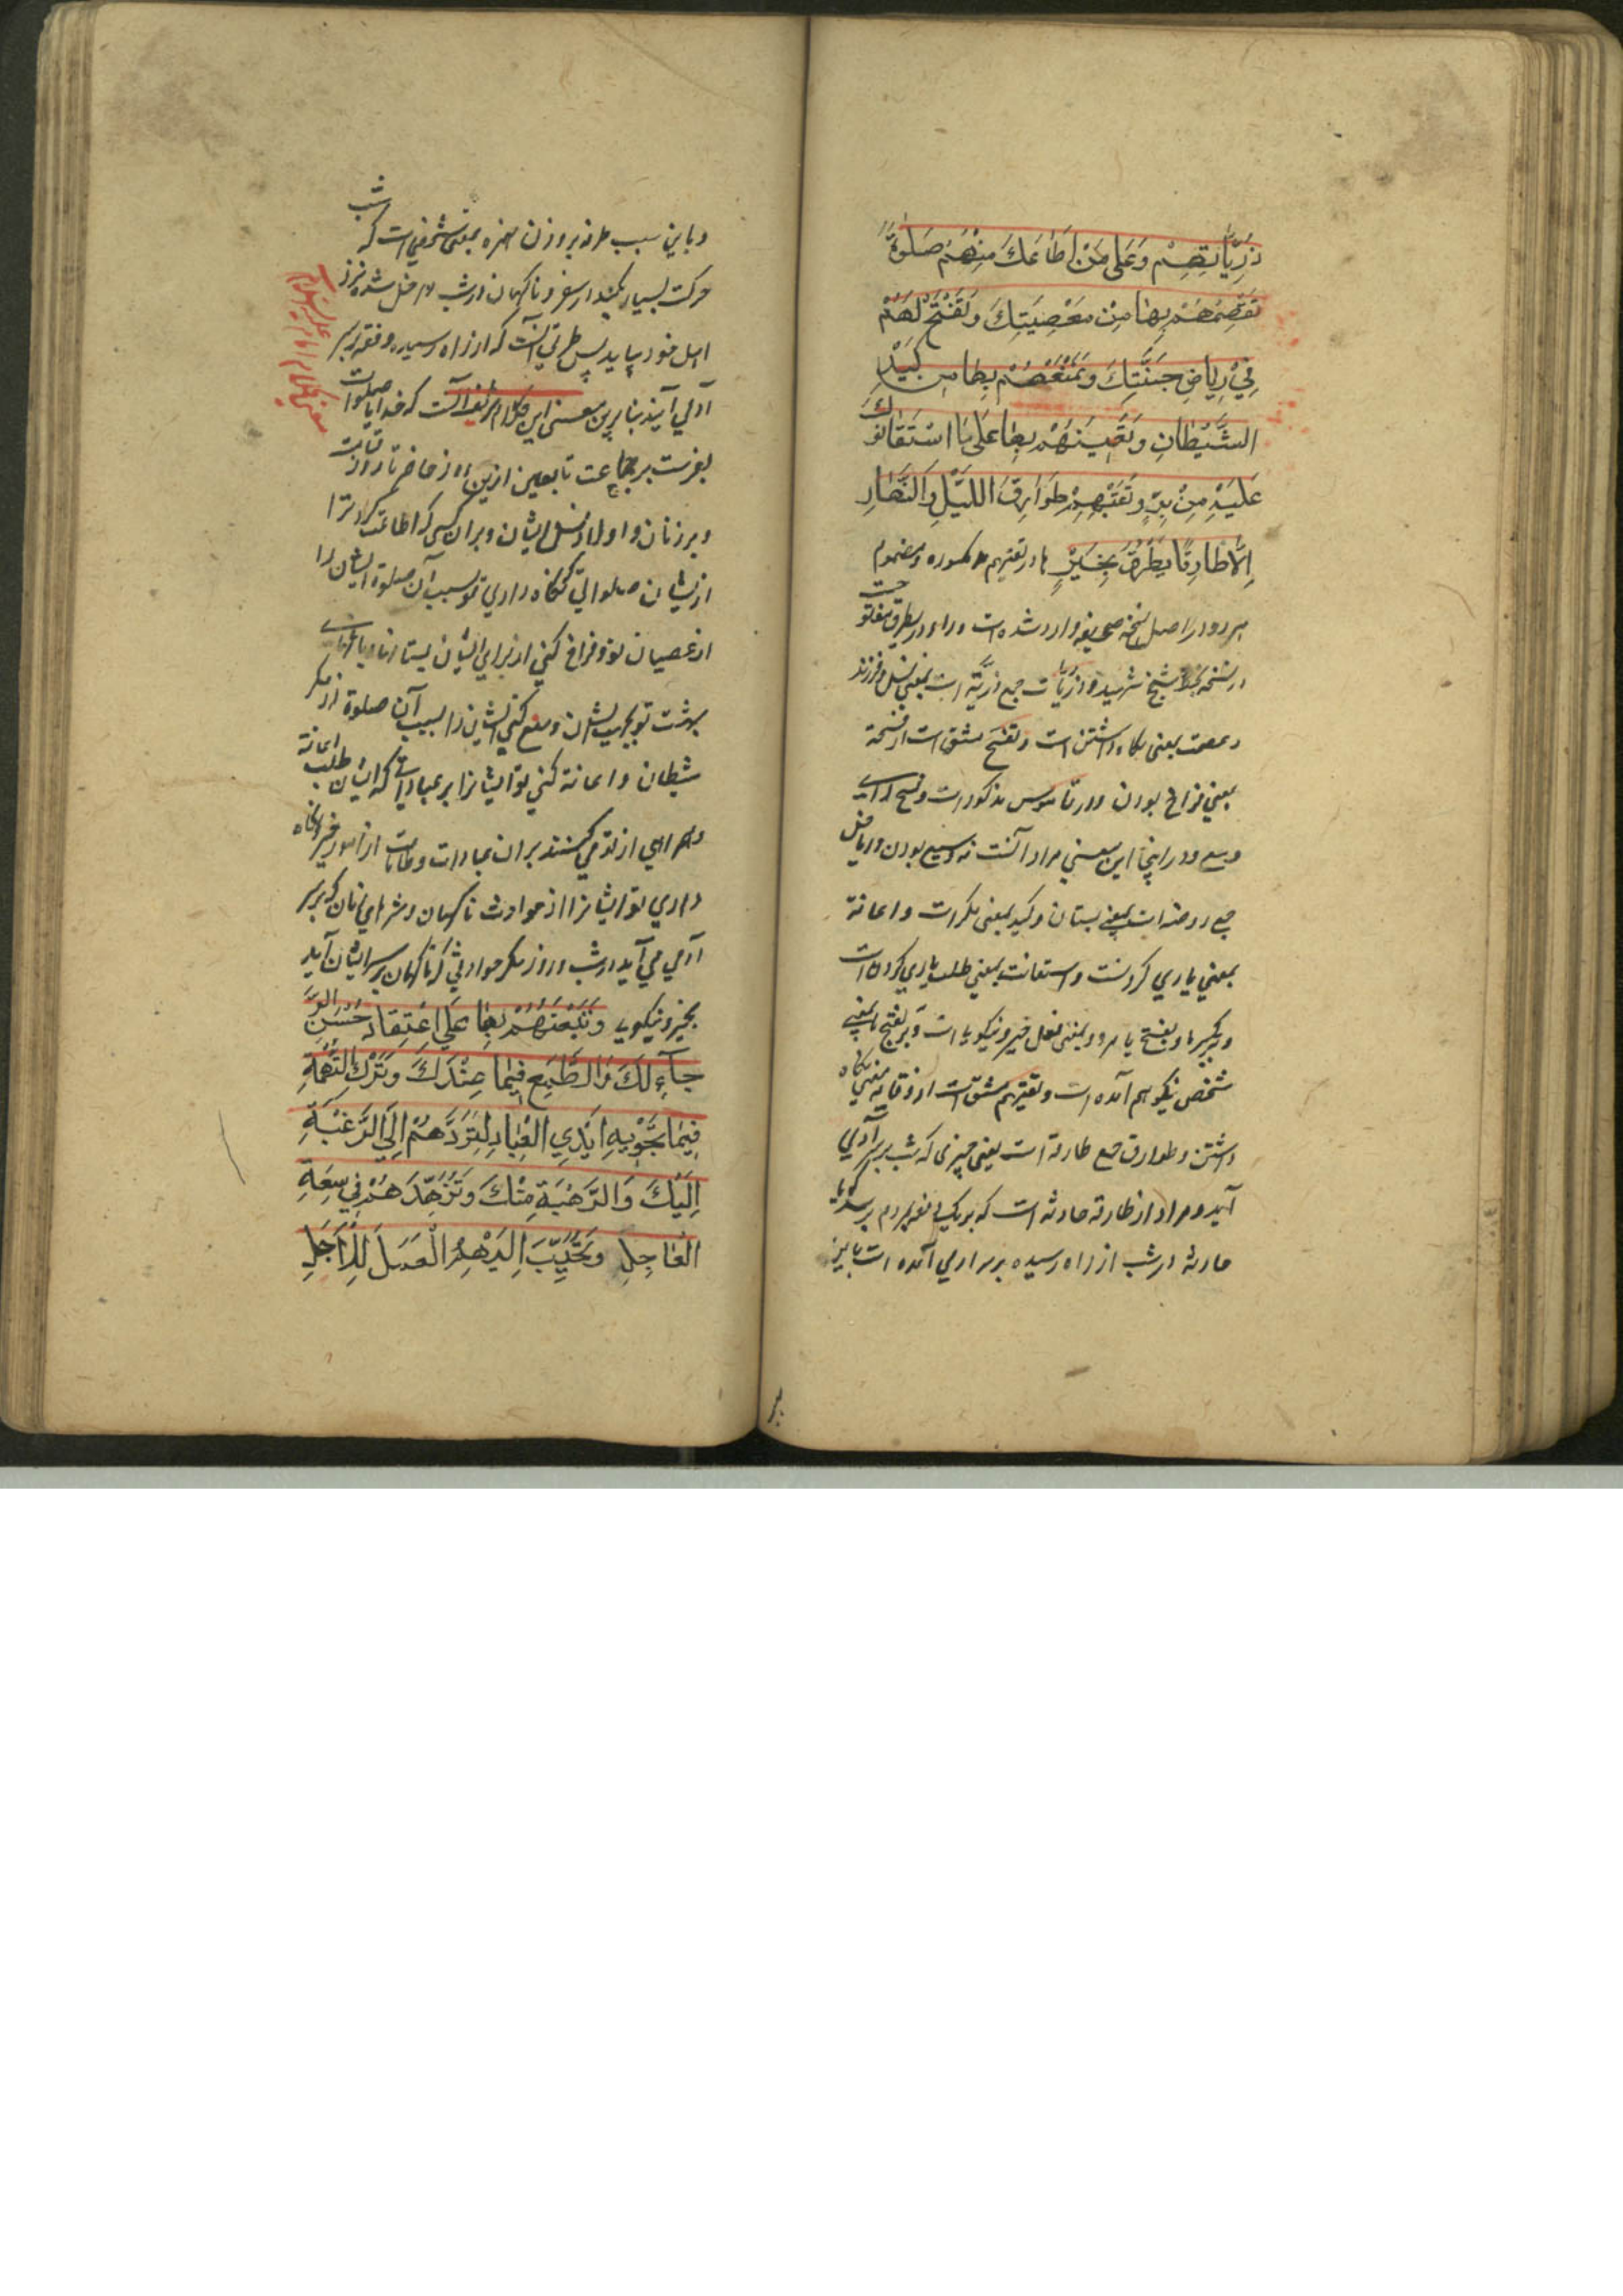 ذُرِّيَّاتِهِمْ وَعَلَى مَنْ اَطَاعَكَ مِنْهُمْ صَلٰوةً
تَعْصِمُهُمْ بِهَا مِنْ مَعْصِيَتِكَ وَتَفْتَحُ لَهُمْ
فِيْ رِيَاضِ جَنَّتِكَ وَتَمْنَعُهُمْ بِهَا مِنْ كَيْدِ
الشَّيْطَانِ وَتُعِينُهُمْ بِهَا عَلَى مَا اسْتَعَانُوكَ
عَلَيْهِ مِنْ بِرٍّ وَتَقِيهِمْ طَوَارِقَ اللَّيْلِ وَالنَّهَارِ
اِلَّا طَارِقًا يَطْرُقُ بِخَيْرٍ ها در تقيهم مكسوره و مضموم
هر دو در اصل نسخه صحيفه وارد شده است و راء در يطرق مفتوحست
در نسخه بخط شيخ شهيد و ذريّات جمع ذريّة است بمعني نسل و فرزند
و عصمت بمعنى نگاه داشتن است و تفسح مشتق است از فسحة
بمعني فراخ بودن و در قاموس مذكور است وفسح له اي
وسع و در اينجا اين معني مراد آنست نه وسيع بودن و رياض
جمع روضه است بمعنى بستان و كيد بمعنى مكر است و اعانة
بمعني ياري كردنست و استعانت بمعني طلب ياري كردن است
و بر بكسر با و بفتح با هر دو بمعنى فعل خير و نيكويى است و بر بفتح بمعني
شخص نيكو هم آمده است و تقيهم مشتق است از وقايه بمعني نگاه
داشتن و طوارق جمع طارقة است يعني چيزى كه شب بر سر آدمي
آيد و مراد از طارقه حادثه است كه بيك دفعه بمردم برسد گويا
حادثه در شب از راه رسيده بر سر ادمي آمده است
و باين سبب طرقه بر وزن همزه بمعني شخصي است كه شب
حركت بسيار بكند از سفر و ناگهان در شب داخل شده نزد
اهل خود بيايد پس طارق آنست كه از راه رسيده دفعة بر سر
آدمي آيد بنابرين معني اين كلام شريف آنست كه خدايا صلوات
بفرست بر جماعت تابعين ازين روز حاضر تا روز قيامت
و بر زنان و اولاد و نسل ايشان و بر آن كسى كه اطاعت كرد ترا
از ايشان صلواتي كه نگاه داري تو بسبب آن صلوة ايشان را
از عصيان تو و فراخ كني از براي ايشان بستانها و باغهاي
بهشت تو بجهت ايشان و منع كني ايشان را بسبب آن صلوة از مكر
شيطان و اعانة كني تو ايشانرا بر عباداتي كه ايشان طلب اعانة
و همراهي از تو مي كنند بر آن عبادات و طاعات از امور خير و نگاه
داري تو ايشانرا از حوادث ناگهان و شرهاي زمان كه بر سر
آدمي مي آيد در شب و روز مگر حوادثي كه ناگهان بر سر ايشان آيد
بخير و نيكويى وَتَبْعَثُهُمْ بِهَا عَلَى اعْتِقَادِ حُسْنِ الرَّ
جَاءِ لَكَ وَالطَّمَعِ فِيمَا عِنْدَكَ وَتَرْكِ التُّهَمَةِ
فِيمَا تَحْوِيهِ اَيْدِي الْعِبَادِ لِتَرُدَّهُمْ اِلَى الرَّغْبَةِ
اِلَيْكَ وَالرَّهْبَةِ مِنْكَ وَتُزَهِّدَهُمْ فِي سَعَةِ
الْعَاجِلِ وَتُحَبِّبَ اِلَيْهِمُ الْعَمَلَ لِلْاٰجِلِ